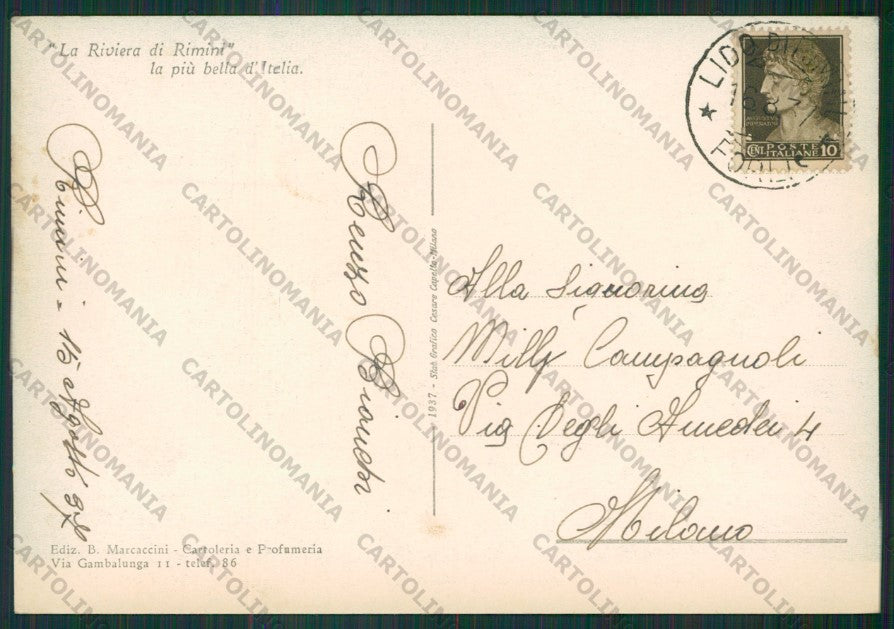 "La Riviera di Rimini"
la più bella d'Italia.
Rimini - 15 Agosto 37
Renzo Bianchi
1937 - Stab. Grafico Cesare Capello-Milano
Alla Signorina
Milly Campagnoli
Via Degli Amedei 4
Milano
Ediz. B. Marcaccini - Cartoleria e Profumeria
Via Gambalunga 11 - telef. 86
LIDO DI
FORLI
CENT. POSTE ITALIANE 10
CARTOLINOMANIA